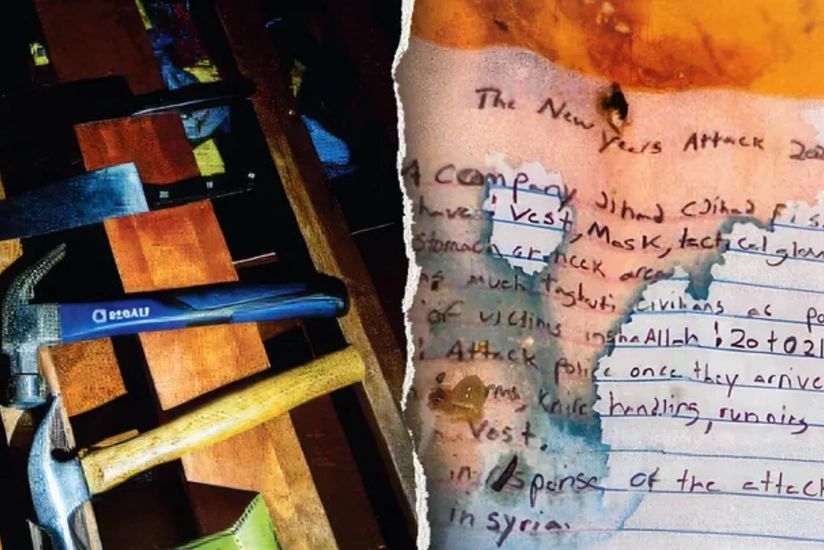 The New Years Attack
A Company Jihad (Jihad
have: Vest, Mask, tactical
stomach or neck area
much taghuti civilians as
of victims inshaAllah: 20 to 21
: Attack police once they arrive
Knife handling, running
Vest,
in response of the attack
in syria.